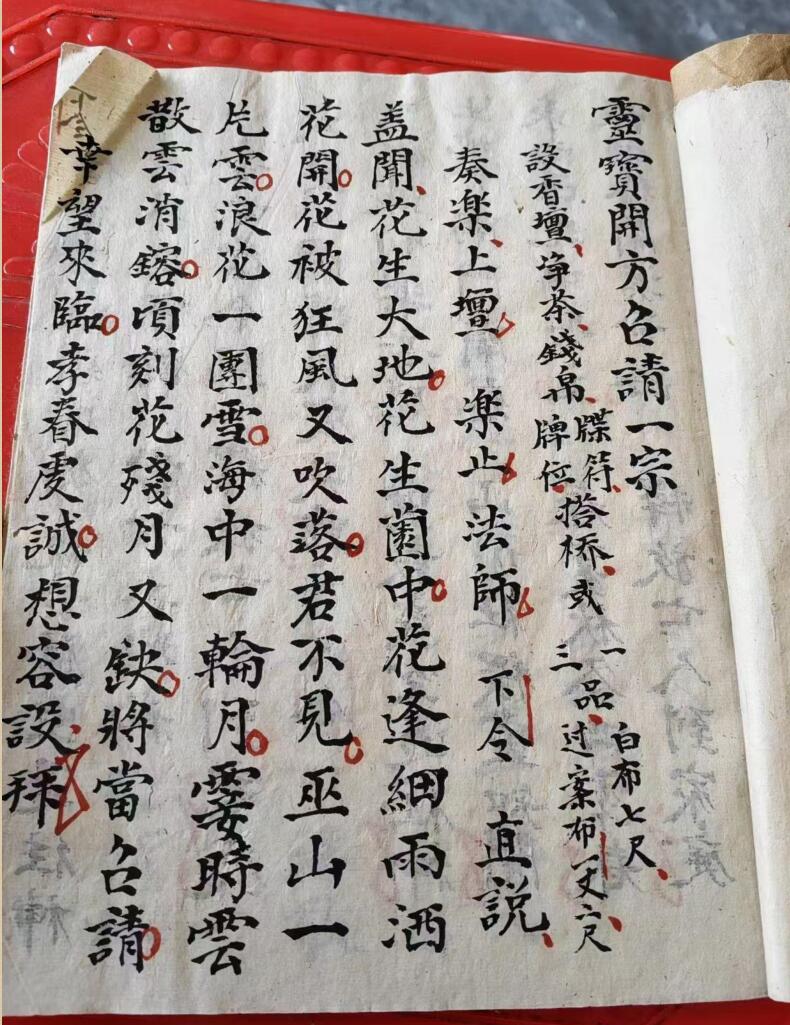 靈寳開方召請一宗
設香壇、净茶、錢帛、牒符、牌位、搭桥、或一三品、白布七尺、过案布一丈二尺、
奏楽、上壇、楽止、法師、下令 直説、
盖聞、花生大地。花生園中。花逢細雨洒
花開。花被狂風又吹落。君不見。巫山一
片雲。浪花一團雪。海中一輪月。霎時雲
散雲消鎔。頃刻花殘月又缺。將當召請。
幸望來臨。孝眷虔誠。想容設拜